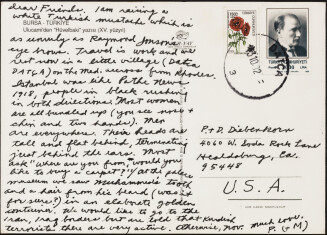 dear Friends. I am raising a
white Turkish mustache which is
BURSA - TÜRKİYE
Ulucami'den "Hüvelbaki" yazısı (XV. yüzyıl)
as scruffy as Raymond Jonson's
eye brow. Travel is work and we
rest now in a little village (DATCA
DATÇA) on the Med. across from Rhodes.
Istanbul was like Pathe News
1918, people in black rushing
in both directions. Most women
are all bundled up (you see nose
chin and two hands). Men
are everywhere. Their heads are
tall and flat behind, terminating
just behind the ears. Most
ask "where are you from, would you
like to buy a carpet?" At the palace
museum we saw Muchammed's tooth
and a hair from his beard (was it
for sure?) in an elaborate golden
container. We would like to go to the
Iran, Iraq borders but are told that Kurdish
terrorists there are very active. Otherwise, nov. much love.
P. & M)
1000
TÜRKİYE
TÜRKİYE CUMHURİYETİ
P. & D. Diebenkorn
4060 W. Soda Rock Lane
Healdsburg, Ca.
95448
U. S. A.